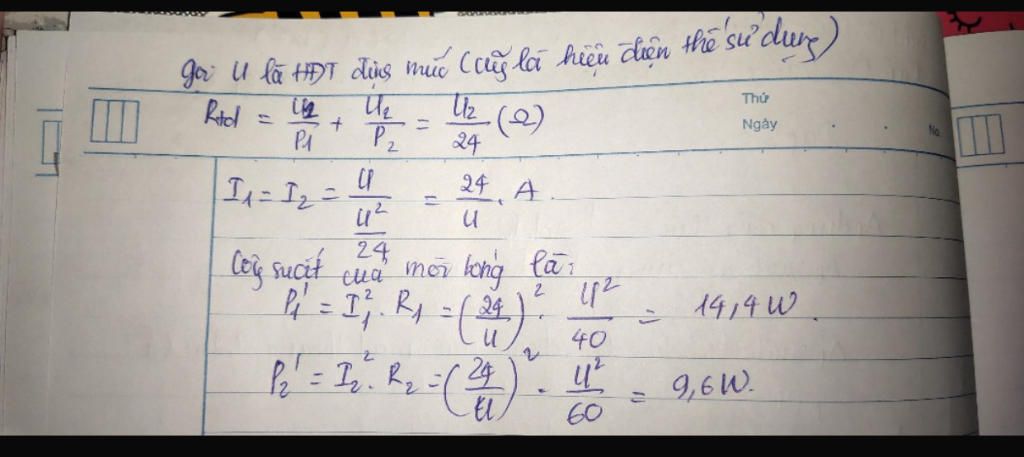 gọi U là HĐT định mức (cũng là hiệu điện thế sử dụng)
Rtđ = U2/P1 + U2/P2 = U2/24 (Ω)
Thứ
Ngày
No.
I1 = I2 = U/(U²/24) = 24/U . A.
Công suất của mỗi bóng là:
P1' = I1². R1 = (24/U)² . U²/40 = 14,4 W.
P2' = I2². R2 = (24/U)² . U²/60 = 9,6 W.